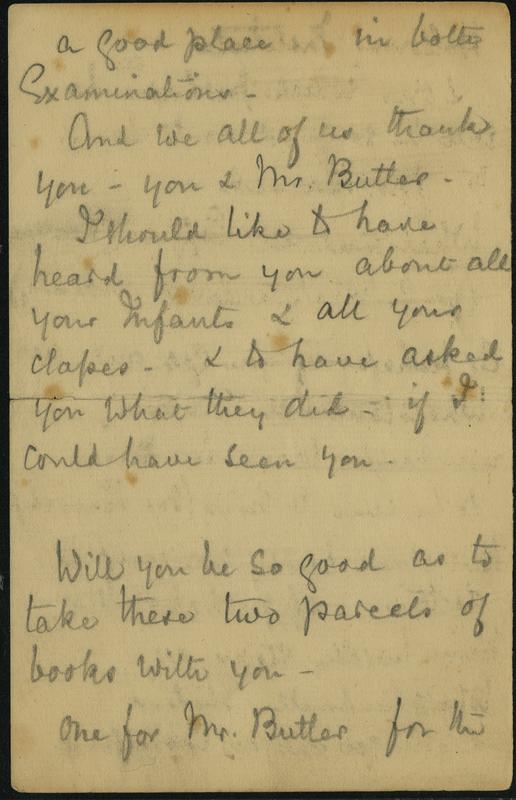 a good place in both
Examinations -
And we all of us thank
you - you & Mr. Butler -
I should like to have
heard from you about all
your Infants & all your
classes - & to have asked
you what they did - if I
could have seen you -
Will you be so good as to
take these two parcels of
books with you -
one for Mr. Butler for the